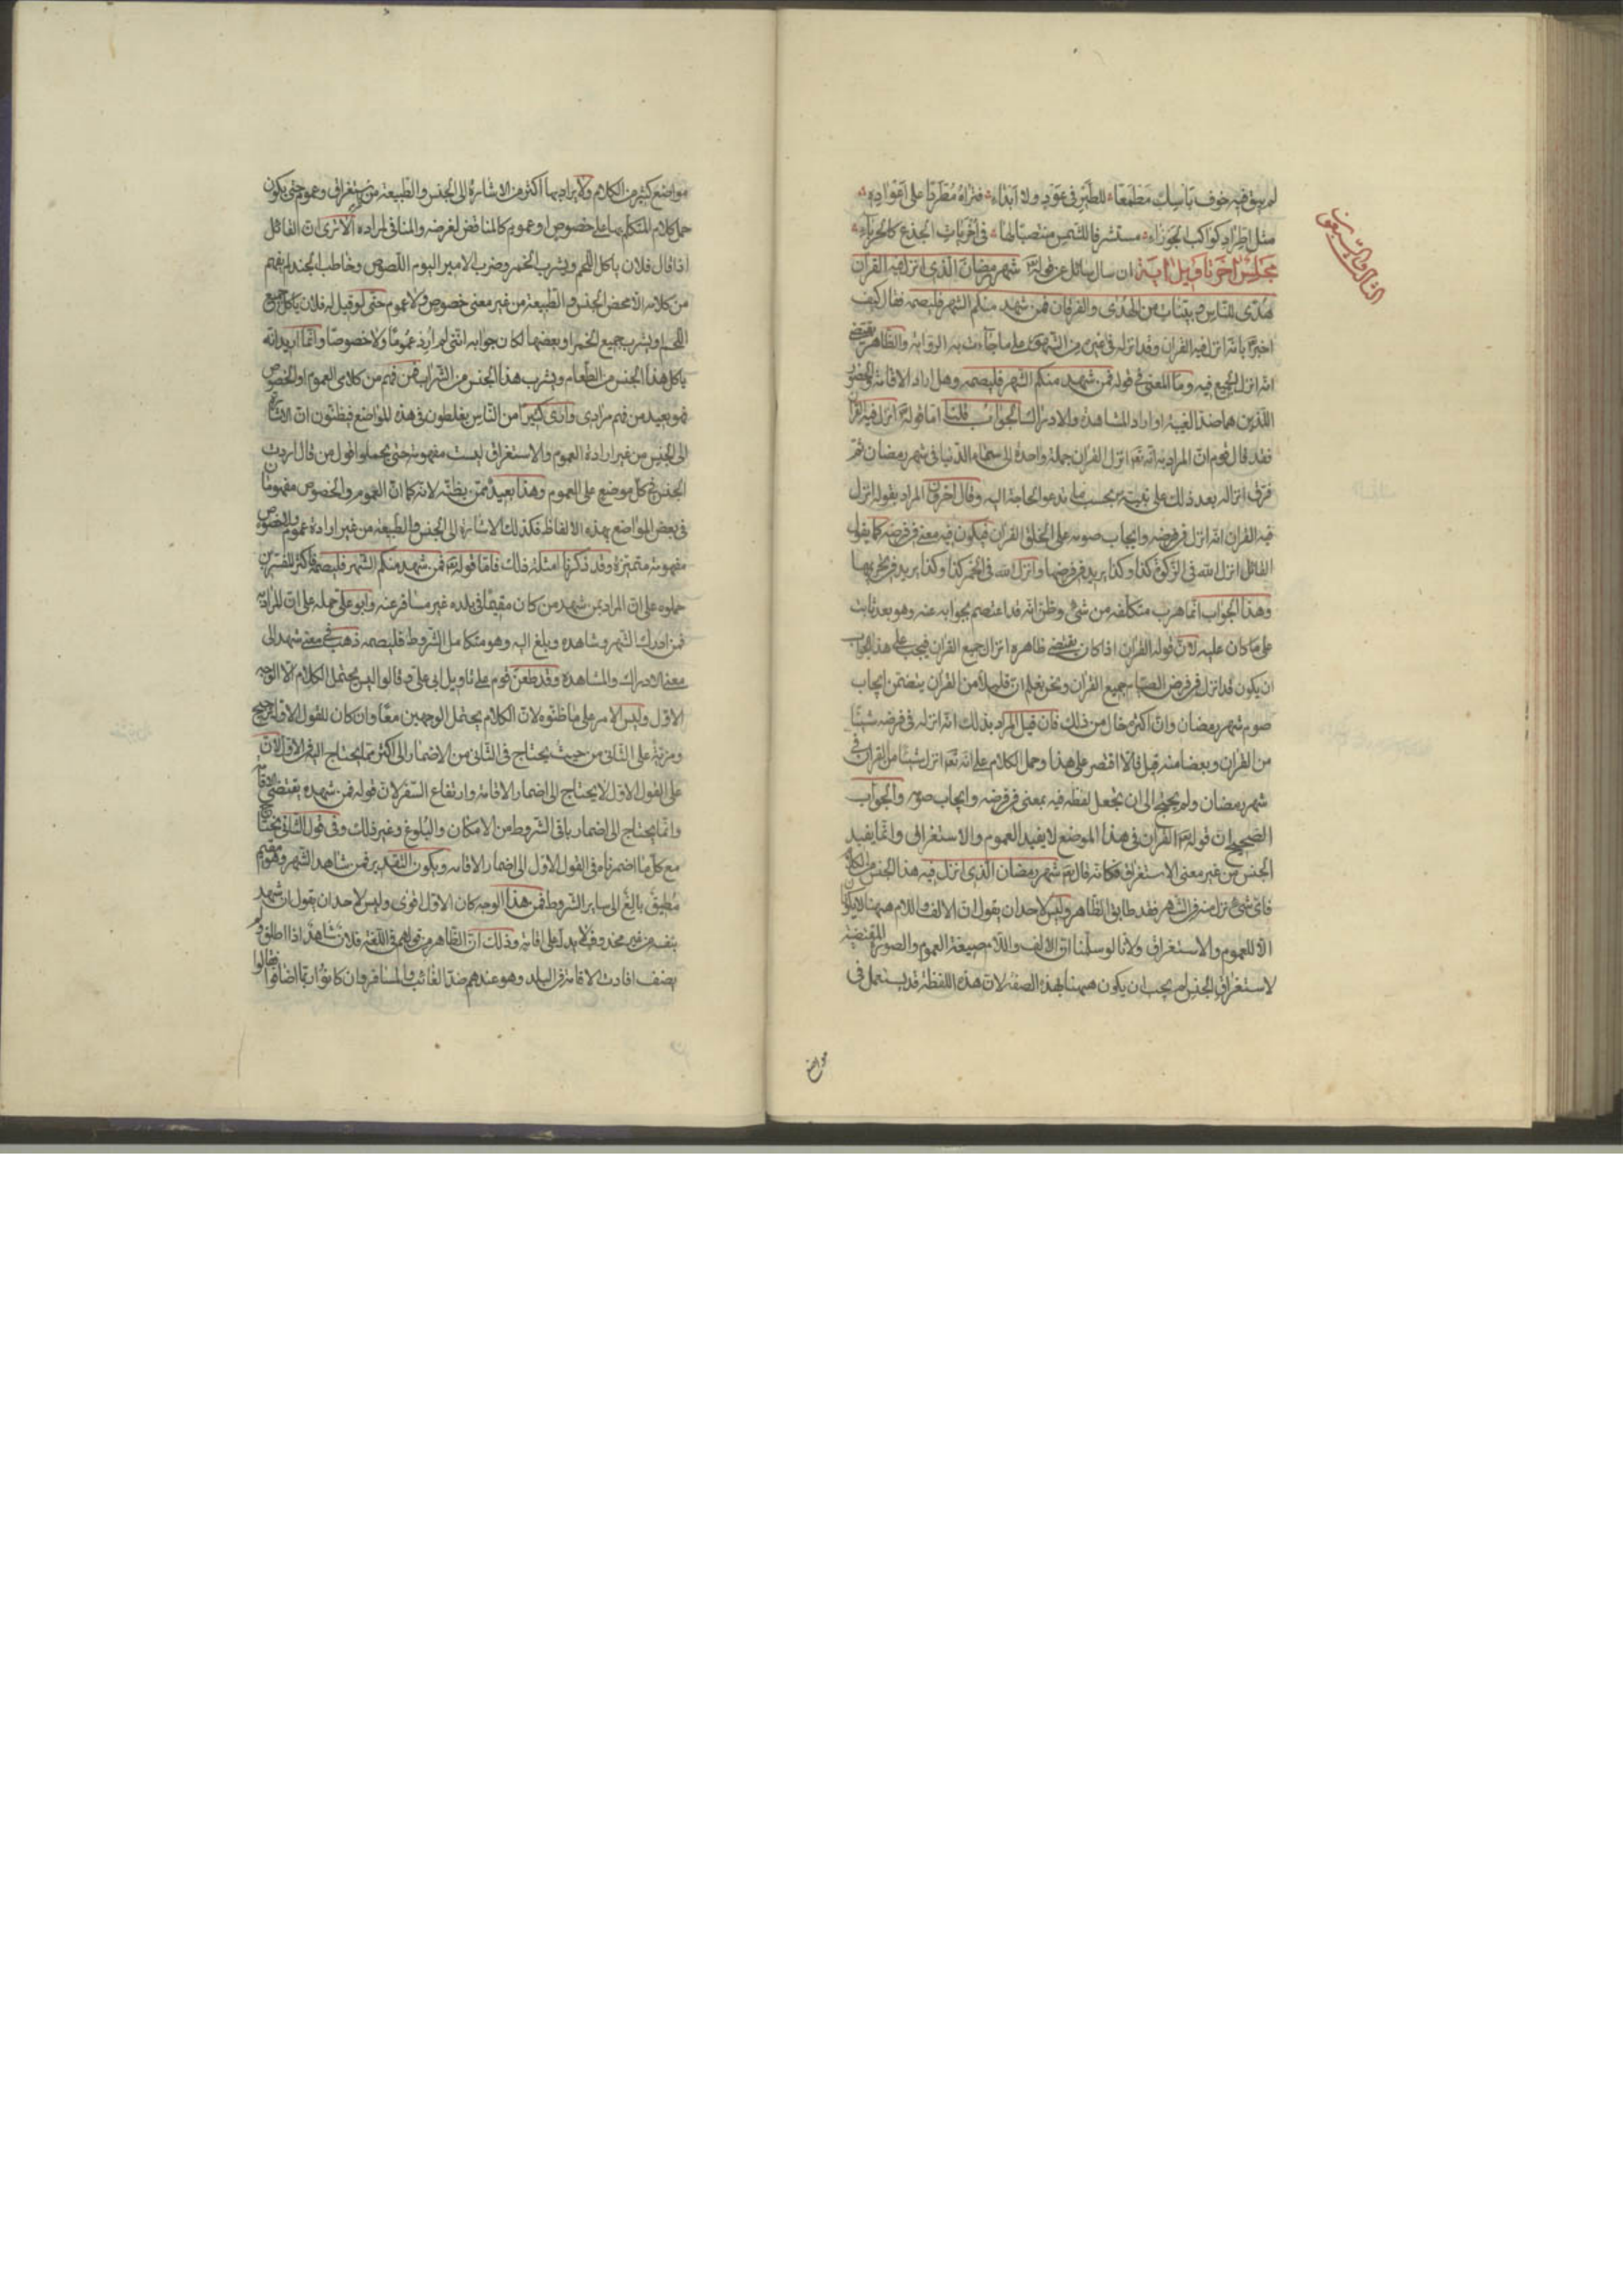 لم يبق فيه خوف باسك مطمعا للطير في عود ولا ابداء فتراه مطردا على اعواده
مثل اطراد كواكب الجوزاء مستشرفا للشمس منتصبا لها في اخريات الجذع كالحرباء
الثالث والسبعون
مجلس اخر تاويل اية ان سال سائل عن قوله تعالى شهر رمضان الذي انزل فيه القران
هدى للناس وبينات من الهدى والفرقان فمن شهد منكم الشهر فليصمه فقال كيف
اخبر تعالى بانه انزل فيه القران وقد انزله في غيره من الشهور على ما جاءت به الرواية والظاهر يقتضي
انه انزل الجميع فيه وما المعنى في قوله فمن شهد منكم الشهر فليصمه وهل اراد الاقامة والحضور
اللذين هما ضد الغيبة او اراد المشاهدة والادراك الجواب قلنا اما قوله تعالى انزل فيه القران
فقد قال قوم ان المراد به انه تعالى انزل القران جملة واحدة الى سماء الدنيا في شهر رمضان ثم
فرق انزاله بعد ذلك على نبيه بحسب ما تدعو الحاجة اليه وقال اخرون المراد بقوله انزل
فيه القران انه انزل في فرضه وايجاب صومه على الخلق القران فيكون فيه معنى في فرضه كما يقول
القائل انزل الله في الزكوة كذا وكذا يريد في فرضها وانزل الله في الخمر كذا وكذا يريد في تحريمها
وهذا الجواب انما هرب متكلفه من شيء وظن انه قد اعتصم بجوابه عنه وهو بعد ثابت
على ما كان عليه لان قوله القران اذا كان يقتضي ظاهره انزال جميع القران فيجب على هذا الجواب
ان يكون قد انزل في فرض الصيام جميع القران ونحن نعلم ان قليلا من القران يتضمن ايجاب
صوم شهر رمضان وان اكثره خال من ذلك فان قيل المراد بذلك انه انزل في فرضه شيئا
من القران وبعضا منه قيل فالا اقتصر على هذا وحمل الكلام على انه تعالى انزل شيئا من القران في
شهر رمضان ولم يحوج الى ان يجعل لفظه فيه بمعنى في فرضه وايجاب صومه والجواب
الصحيح ان قوله تعالى القران في هذا الموضع لا يفيد العموم والاستغراق وانما يفيد
الجنس من غير معنى الاستغراق فكانه قال تعالى شهر رمضان الذي انزل فيه هذا الجنس من الكلام
فاي شيء نزل منه في الشهر فقد طابق الظاهر وليس لاحد ان يقول ان الالف واللام ههنا لا يكونان
الا للعموم والاستغراق ولانا لو سلمنا ان الالف واللام صيغة العموم والصورة المقتضية
لاستغراق الجنس لم يجب ان يكون ههنا بهذه الصفة لان هذه اللفظة قد يستعمل في
مواضع
مواضع كثيرة من الكلام ولا يراد بها اكثر من الاشارة الى الجنس والطبيعة من غير استغراق وعموم حتى يكون
حمل كلام المتكلم بها على خصوص او عموم كالمناقض لغرضه والمنافي لمراده الا ترى ان القائل
اذا قال فلان ياكل اللحم ويشرب الخمر وضرب الامير اليوم اللصوص وخاطب الجند لم يفهم
من كلامه الا محض الجنس والطبيعة من غير معنى خصوص ولا عموم حتى لو قيل له فلان ياكل جميع
اللحم ويشرب جميع الخمر او بعضها لكان جوابه انني لم ارد عموما ولا خصوصا وانما اريد انه
ياكل هذا الجنس من الطعام ويشرب هذا الجنس من الشراب فمن فهم من كلامي العموم او الخصوص
فهو بعيد من فهم مرادي وارى كثيرا من الناس يغلطون في هذه المواضع فيظنون ان الاشارة
الى الجنس من غير ارادة العموم والاستغراق ليست مفهومة حتى يحملوا قول من قال اردت
الجنس في كل موضع على العموم وهذا بعيد ممن يظنه لانه كما ان العموم والخصوص مفهومان
في بعض المواضع بهذه الالفاظ فكذلك الاشارة الى الجنس والطبيعة من غير ارادة عموم ولا خصوص
مفهومة متميزة وقد ذكرنا امثلة ذلك فاما قوله تعالى فمن شهد منكم الشهر فليصمه فاكثر المفسرين
حملوه على ان المراد بمن شهد من كان مقيما في بلده غير مسافر عنه وابو علي حمله على ان المراد به
فمن ادرك الشهر وشاهده وبلغ اليه وهو متكامل الشروط فليصمه ذهب في معنى شهد الى
معنى الادراك والمشاهدة وقد طعن قوم على تاويل ابي علي وقالوا ليس يحتمل الكلام الا الوجه
الاول وليس الامر على ما ظنوه لان الكلام يحتمل الوجهين معا وان كان للقول الاول ترجيح
ومزية على الثاني من حيث يحتاج في الثاني من الاضمار الى اكثر مما يحتاج اليه في الاول لان
على القول الاول لا يحتاج الى اضمار الاقامة وارتفاع السفر لان قوله فمن شهد يقتضي الاقامة
وانما يحتاج الى اضمار باقي الشروط من الامكان والبلوغ وغير ذلك وفي قول الثاني يحتاج
مع كل ما اضمرناه في القول الاول الى اضمار الاقامة ويكون التقدير فمن شاهد الشهر وهو مقيم
مطيق بالغ الى سائر الشروط فمن هذا الوجه كان الاول اقوى وليس لاحد ان يقول ان شهد
بنفسه من غير محذوف لا يدل على اقامة وذلك ان الظاهر من قولهم في اللغة فلان شاهد اذا اطلق ولم
يضف افادت الاقامة في البلد وهو عندهم ضد الغائب والمسافر وان كانوا ربما اضافوا فقالوا